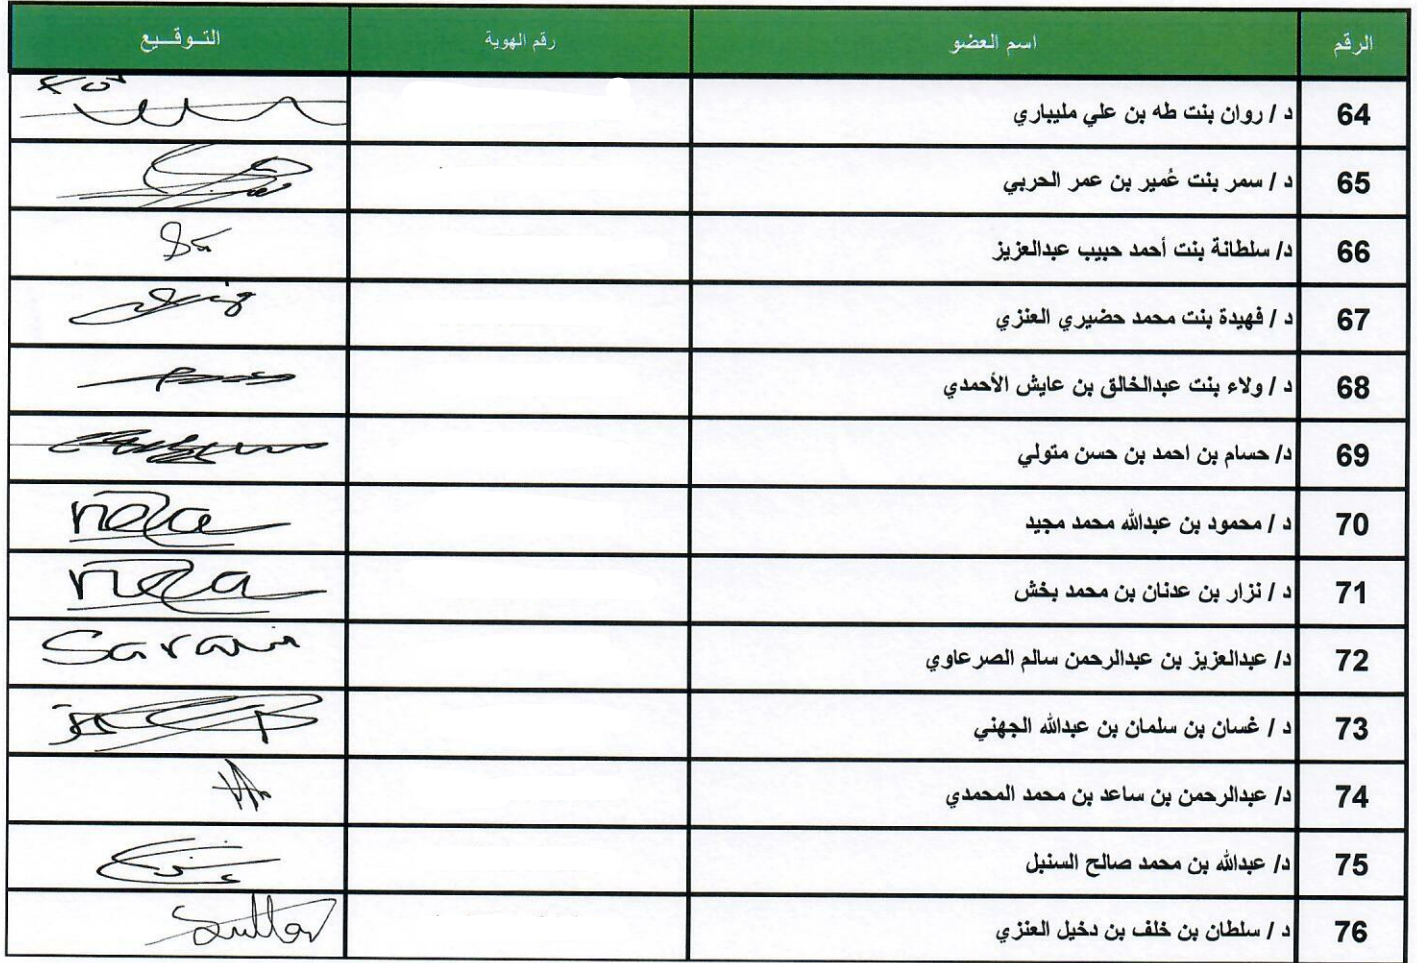 الرقم اسم العضو رقم الهوية التـوقـيع
64 د / روان بنت طه بن علي مليباري
65 د / سمر بنت عُمير بن عمر الحربي
66 د/ سلطانة بنت أحمد حبيب عبدالعزيز
67 د / فهيدة بنت محمد حضيري العنزي
68 د / ولاء بنت عبدالخالق بن عايش الأحمدي
69 د/ حسام بن احمد بن حسن متولي
70 د / محمود بن عبدالله محمد مجيد
71 د / نزار بن عدنان بن محمد بخش
72 د/ عبدالعزيز بن عبدالرحمن سالم الصرعاوي
73 د / غسان بن سلمان بن عبدالله الجهني
74 د/ عبدالرحمن بن ساعد بن محمد المحمدي
75 د/ عبدالله بن محمد صالح السنبل
76 د / سلطان بن خلف بن دخيل العنزي Sultan